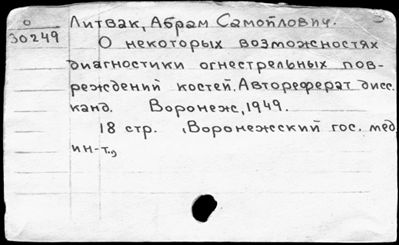 О
30249
Литвак, Абрам Самойлович.
О некоторых возможностях
диагностики огнестрельных пов-
реждений костей. Автореферат дисс.
канд. Воронеж, 1949.
18 стр. (Воронежский гос. мед.
ин-т.)